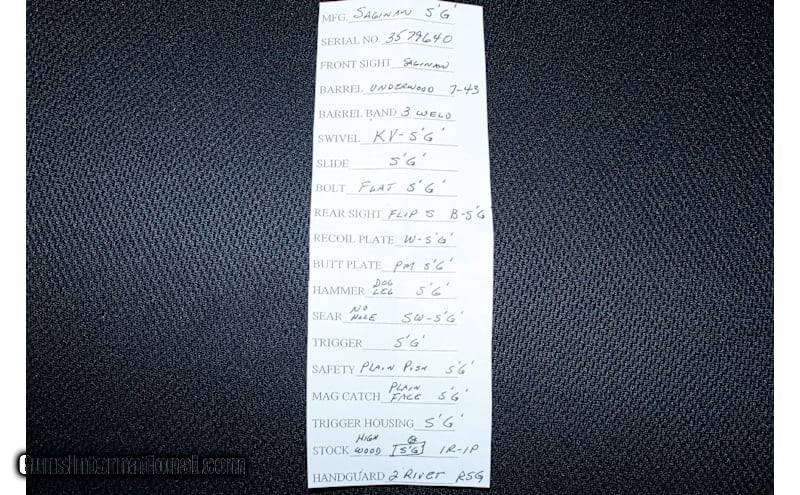 MFG. SAGINAW S'G'
SERIAL NO. 3579640
FRONT SIGHT SAGINAW
BARREL UNDERWOOD 7-43
BARREL BAND 3 WELD
SWIVEL KV-S'G'
SLIDE S'G'
BOLT FLAT S'G'
REAR SIGHT FLIP S B-S'G
RECOIL PLATE W-S'G'
BUTT PLATE PM S'G'
HAMMER DOG LEG S'G'
SEAR NO HOLE SW-S'G'
TRIGGER S'G'
SAFETY PLAIN PUSH S'G'
MAG CATCH PLAIN FACE S'G'
TRIGGER HOUSING S'G'
STOCK HIGH WOOD S'G' IR-IP
HANDGUARD 2 RIVET RSG
GunsInternational.com